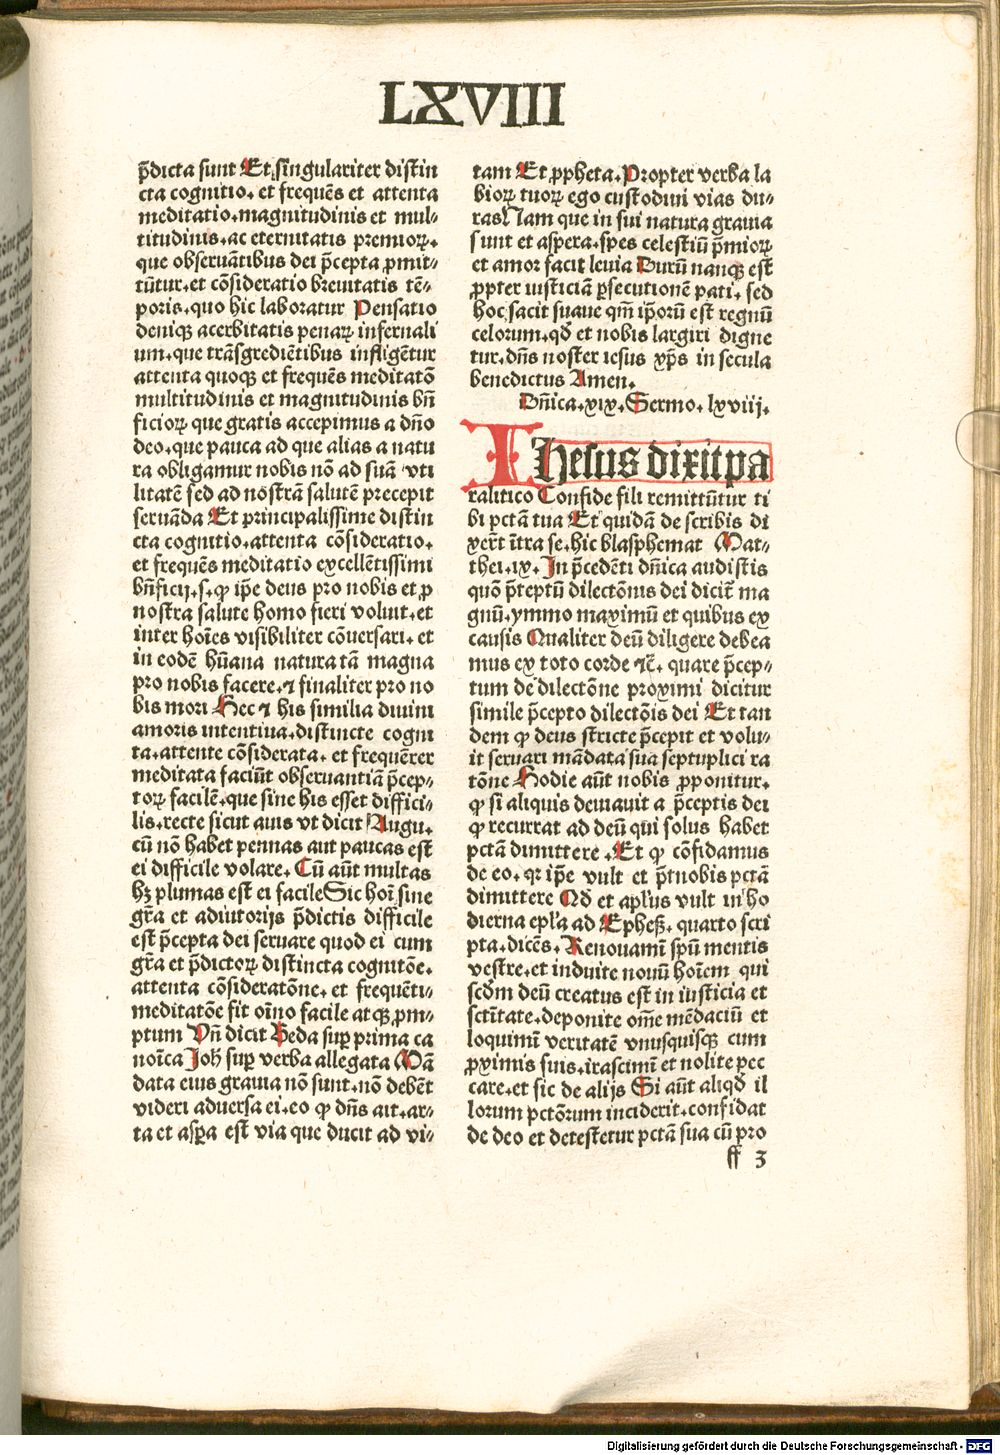 LXVIII
p̄dicta sunt Et singulariter distin
cta cognitio. et frequēs et attenta
meditatio. magnitudinis et mul⸗
titudinis. ac eternitatis premioꝝ.
que obseruātibus dei p̄cepta ꝓmit⸗
tūtur. et cōsideratio breuitatis tē⸗
poris. quo hic laboratur Pensatio
deniqꝫ acerbitatis penaꝝ infernali
um. que trāsgrediētibus infligētur
attenta quoqꝫ et frequēs meditatō
multitudinis et magnitudinis bn̄
ficioꝝ que gratis accepimus a dn̄o
deo. que pauca ad que alias a natu
ra obligamur nobis nō ad suā vti
litatē sed ad nostrā salutē precepit
seruāda Et principalissime distin
cta cognitio. attenta cōsideratio.
et frequēs meditatio excellētissimi
bn̄ficij. s. ꝙ ip̄e deus pro nobis et ꝓ
nostra salute homo fieri voluit. et
inter hoīes visibiliter cōuersari. et
in eodē hūana natura tā magna
pro nobis facere. ⁊ finaliter pro no
bis mori Hec ⁊ his similia diuini
amoris intentiua. distincte cogni
ta. attente cōsiderata. et frequērer
meditata faciūt obseruantiā p̄cep⸗
toꝝ facilē. que sine his esset diffici⸗
lis. recte sicut auis vt dicit Augu.
cū nō habet pennas aut paucas est
ei difficile volare. Cū aūt multas
hꝫ plumas est ei facile Sic hoī sine
gr̄a et adiutorijs p̄dictis difficile
est p̄cepta dei seruare quod ei cum
gr̄a et p̄dictoꝝ distincta cognitōe.
attenta cōsideratōne. et frequēti⸗
meditatōe fit oīno facile atqꝫ ꝓm⸗
ptum Vn̄ dicit Beda suꝑ prima ca
noīca Joh suꝑ verba allegata Mā
data eius grauia nō sunt. nō debēt
videri aduersa ei. eo ꝙ dn̄s ait. ar⸗
ta et aspa est via que ducit ad vi⸗
tam Et ꝓpheta. Propter verba la
bioꝝ tuoꝝ ego custodiui vias du⸗
ras Nam que in sui natura grauia
sunt et aspera. spes celestiū p̄mioꝝ
et amor facit leuia Durū nanqꝫ est
ꝓpter iusticiā ꝑsecutionē pati. sed
hoc facit suaue qm̄ ip̄orū est regnū
celorum. qd̄ et nobis largiri digne
tur. dn̄s noster iesus xp̄s in secula
benedictus Amen.
Dn̄ica. xix. Sermo. lxviij.
IHesus dixit pa
ralitico Confide fili remittūtur ti
bi pctā tua Et quidā de scribis di
xerūt ītra se. hic blasphemat Mat⸗
thei. ix. In p̄cedēti dn̄ica audistis
quō p̄teptū dilectōnis dei dicit̄ ma
gnū. ymmo maximū et quibus ex
causis Qualiter deū diligere debea
mus ex toto corde ⁊c̄. quare p̄cep⸗
tum de dilectōne proximi dicitur
simile p̄cepto dilectōis dei Et tan
dem ꝙ deus stricte p̄cepit et volu⸗
it seruari mādata sua septuplici ra
tōne Hodie aūt nobis ꝓponitur.
ꝙ si aliquis deuiauit a p̄ceptis dei
ꝙ recurrat ad deū qui solus habet
pctā dimittere. Et ꝙ cōfidamus
de eo. qꝛ ip̄e vult et p̄t nobis pctā
dimittere Qd̄ et apl'us vult in ho
dierna epl'a ad Ephes. quarto scri
pta. dicēs. Renouamī spū mentis
vestre. et induite nouū hoīem qui
scd̄m deū creatus est in iusticia et
sctītate. deponite om̄e mēdaciū et
loquimī veritatē vnusquisqꝫ cum
ꝓximis suis. irascimī et nolite pec
care. et sic de alijs Si aūt aliqd̄ il
lorum pctōrum inciderit. confidat
de deo et detestetur pctā sua cū pro
ff 3
Digitalisierung gefördert durch die Deutsche Forschungsgemeinschaft - DFG